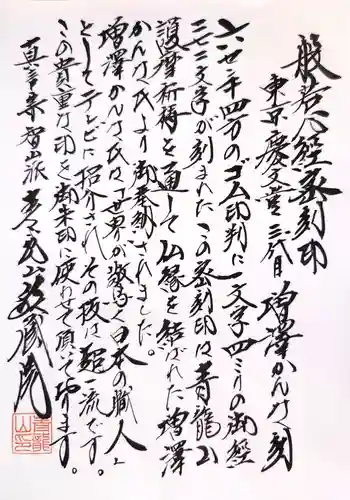 般若心経密刻印
東京 慶文堂 三代目 増澤かん乃 刻
六・七センチ四方のゴム印判に一文字四ミリの御経
二七二文字が刻まれたこの密刻印は青龍山
護摩祈祷を通して仏縁を結ばれた増澤
かん乃氏より御奉納されました。
増澤かん乃氏は「世界が驚く日本の職人」
としてテレビに紹介されその技は超一流です。
この貴重な印を御朱印に使わせて頂いております。
真言宗 智山派